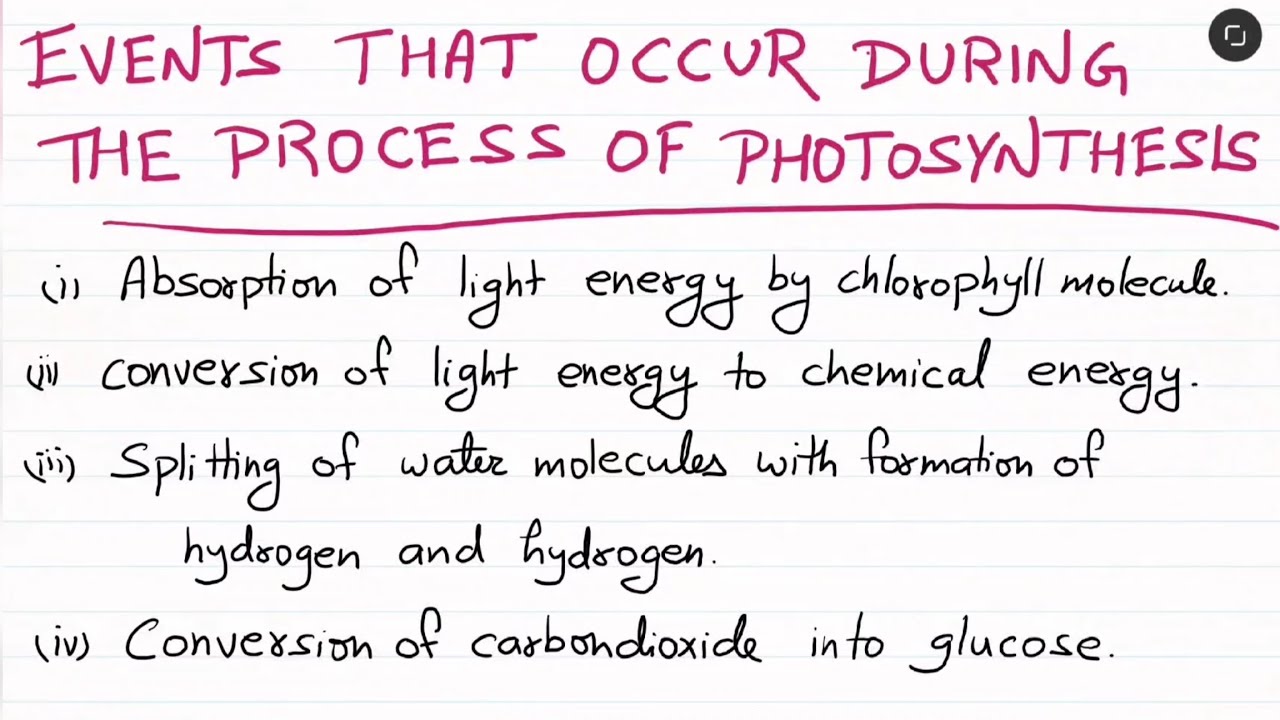 EVENTS THAT OCCUR DURING
THE PROCESS OF PHOTOSYNTHESIS
(i) Absorption of light energy by chlorophyll molecule.
(ii) conversion of light energy to chemical energy.
(iii) Splitting of water molecules with formation of
hydrogen and hydrogen.
(iv) Conversion of carbondioxide into glucose.